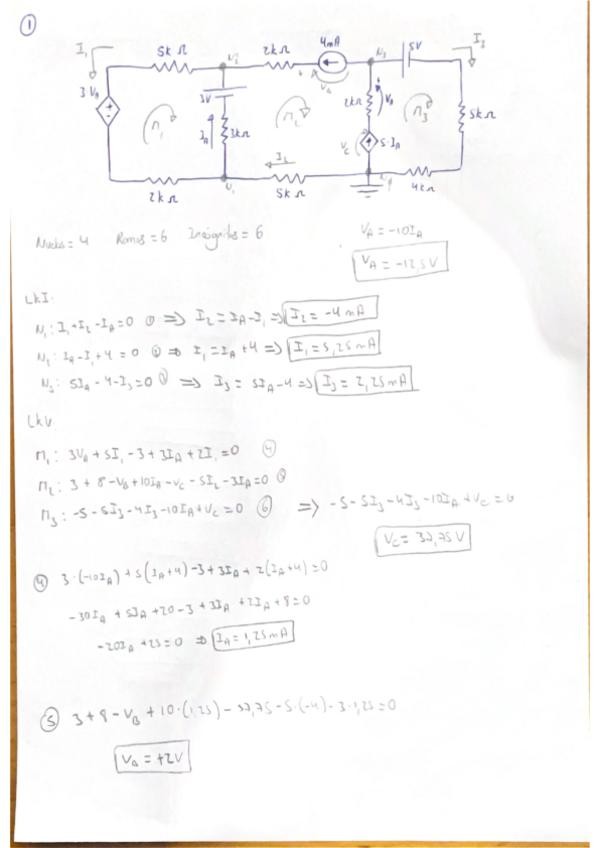 ①
I₁ 5kΩ N₂ 2kΩ 4mA N₃ 5V I₃
3V
2kΩ
5kΩ
M₁ M₂ M₃
I_A 3kΩ V_C 5·I_A
I₂
2kΩ N₁ 5kΩ 4kΩ
Nudos = 4 Ramas = 6 Incógnitas = 6 V_A = -10I_A
V_A = -12,5V
LKI.
N₁: I₁+I₂-I_A=0 ① => I₂ = I_A-I₁ => I₂ = -4mA
N₂: I_A-I₁+4=0 ② => I₁ = I_A+4 => I₁ = 5,25mA
N₃: 5I_A-4-I₃=0 ③ => I₃ = 5I_A-4 => I₃ = 2,25mA
LKV.
M₁: 3V_A+5I₁-3+3I_A+2I₁=0 ④
M₂: 3+8-V_B+10I_A-V_C-5I₂-3I_A=0 ⑤
M₃: -5-5I₃-4I₃-10I_A+V_C=0 ⑥ => -5-5I₃-4I₃-10I_A+V_C=0
V_C = 37,75V
④ 3·(-10I_A)+5(I_A+4)-3+3I_A+2(I_A+4)=0
-30I_A+5I_A+20-3+3I_A+2I_A+8=0
-20I_A+25=0 => I_A=1,25mA
⑤ 3+8-V_B+10·(1,25)-37,75-5·(-4)-3·1,25=0
V_B = +2V